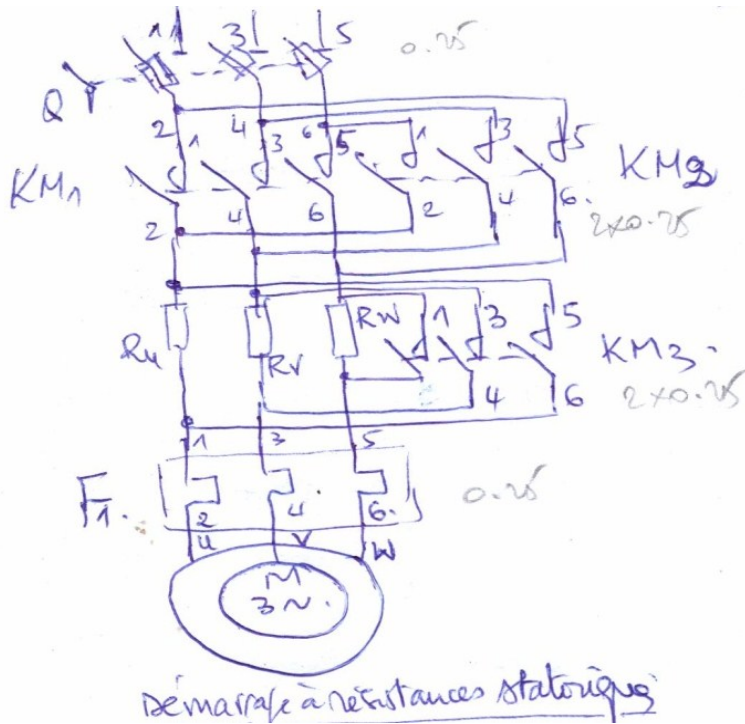 1 3 5
0.25
Q
2 4 6 1 3 5
1 3 5
KM1 KM2
2 4 6 2 4 6.
2x0.25
Ru RV RW 1 3 5
KM3.
4 6
2x0.25
1 3 5
F1. 0.25
2 4 6.
U V W
M
3~.
Démarrage à résistances statoriques